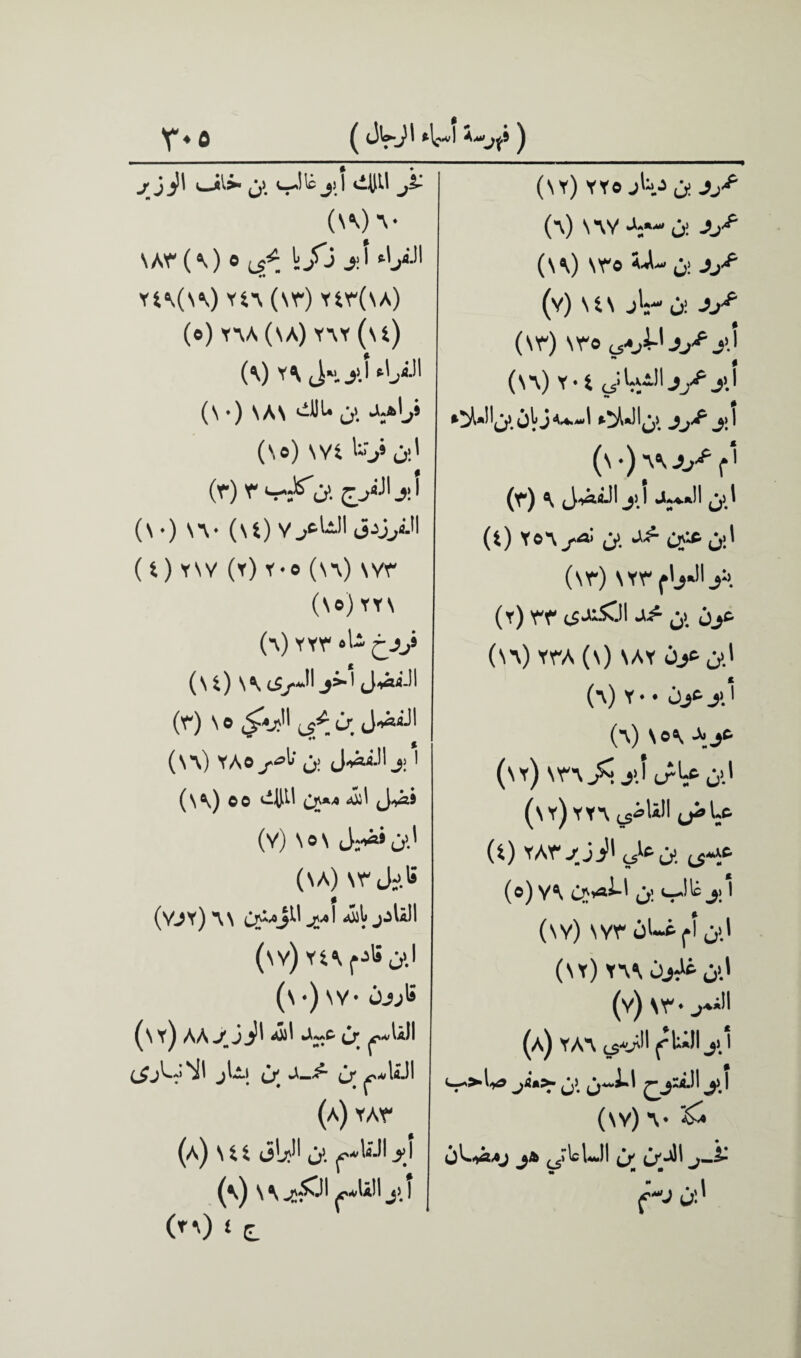 ( فهرسة أسماء الرجال )
٣٠٥
عمرو بن دينار ٢٢٥ (١٢)
عمرو بن سعيد ١٦٧ (٦)
عمرو بن سلمة ١٣٥ (١٩)
عمرو بن سيار ١٤١ (٧)
أبو عمرو الجرمي ١٣٥ (١٣)
أبو عمرو الشيباني ٢٠٤ (١٦)
أبو عمرو بن العلاء اسمه زبان بن العلاء
أم عمرو ١٩٩ (١٠)
ابن العميد أبو الفضل ٩ (٣)
ابن عنين محمد بن نصر ٢٥٦ (٤)
بنو العوام ١٢٣ (١٣)
عون بن محمد الكندي ٣٣ (٢)
ابن عون ١٨٢ (١) ٢٣٨ (١٦)
أبو عون ٢٠٠ (٦)
عويد ١٥٩ (٦)
ابن عياش أبو بكر ١٣٦ (١٢)
عياض القاضي ٢٢٦ (١٢)
عيسى بن علي الوزير ٢٨٣ (٤)
أبو غالب بن الحصين ٧٩ (٥)
ابن أم غسان ١٧٣ (١٧)
ابن غلبون ٢٦٩ (١٢)
الغمر ١٣٠ (٧)
أبو الغنائم النرسي ٢٨٦ (٨)
أبو الفتوح الحسن بن جعفر صاحب
مكة ٦٠ (١٧)
فخر الدين بن الساعاتي هو رضوان
ابن رستم
فخر الملك أبو غالب بن خلف الوزير
٦٠ (١٩)
الفراء أبو زكريا يحيى ٥ (٩) ١٨٣
(١٨)٢٤٣ (١٣) ٢٤٦ (١٩)٢٤٩
(١٤) ٢٦٢ (١٨) ٢٦٨ (٥)
الفراء أبو يعلى ٢٩ (٩)
فراهيد بن مالك ١٨٩ (١٠)
ابن فرتنا ١٧٤ (١٥)
أبو الفرج بن كليب ٣ (٣)
الفرزدق الشاعر ٧ (١٤) ١٦٠ (١٠)
١٧٣ (١٦) ٢٠٥ (٢) ٢١٧ (٤)
٢٢١ (١٥)
فروخ شاه ٢٢٣ (٦)
الفضل أخو السري ١٩ (١٤)
الفضل بن محمد اليزيدي ١٥ (٣)
أبو الفضل بن ناصر ٢٨٥ (١٦)
فضل الله معين الملك ٥٥ (١٩)
ابن فضيل ١٥١ (٧)
قابيل ١٣ (١٨)
القادر بالله أمير المؤمنين ٦١ (٢و٧)
ابن قادم ٢٤٩ (١٧)
قارون ١٧٠ (١٠)
القاسم بن عبيد الله الوزير ٨٨ (١٢)
القاسم بن محمد بن بشار الانباري
٢٨٣ (٨)
أبو القاسم بن البواق ١٤٤ (٨)
أبو القاسم الكبير ١٩ (٩)
ج ٤ (٣٩)